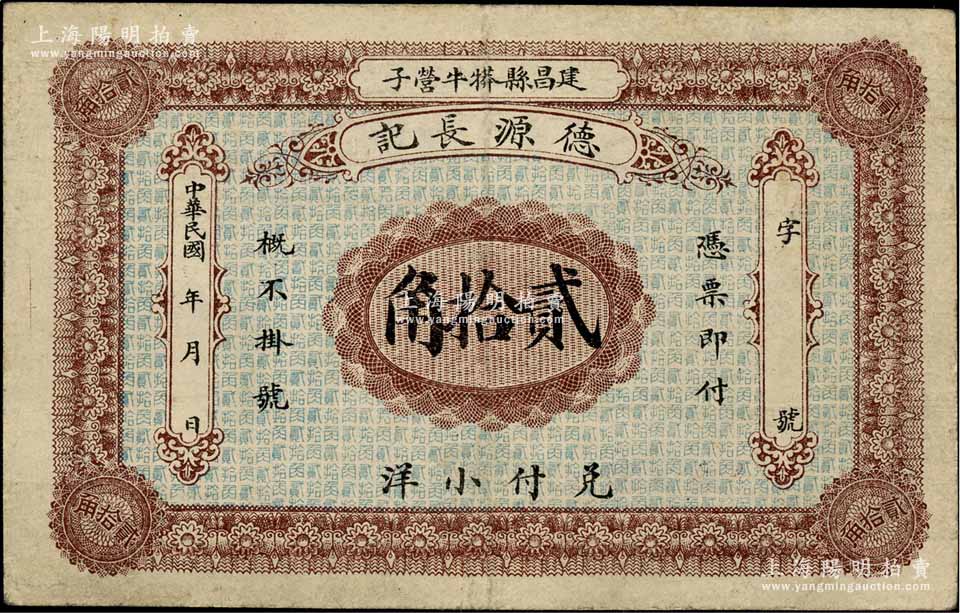 上海陽明拍賣
www.yangmingauction.com
建昌縣牛營子
德源長記
貳拾角
貳拾角
字 號
憑票即付
貳拾角
上海陽明拍賣
www.yangmingauction.com
概不掛號
中華民國 年 月 日
兌付小洋
貳拾角
貳拾角
上海陽明拍賣
www.yangmingauction.com